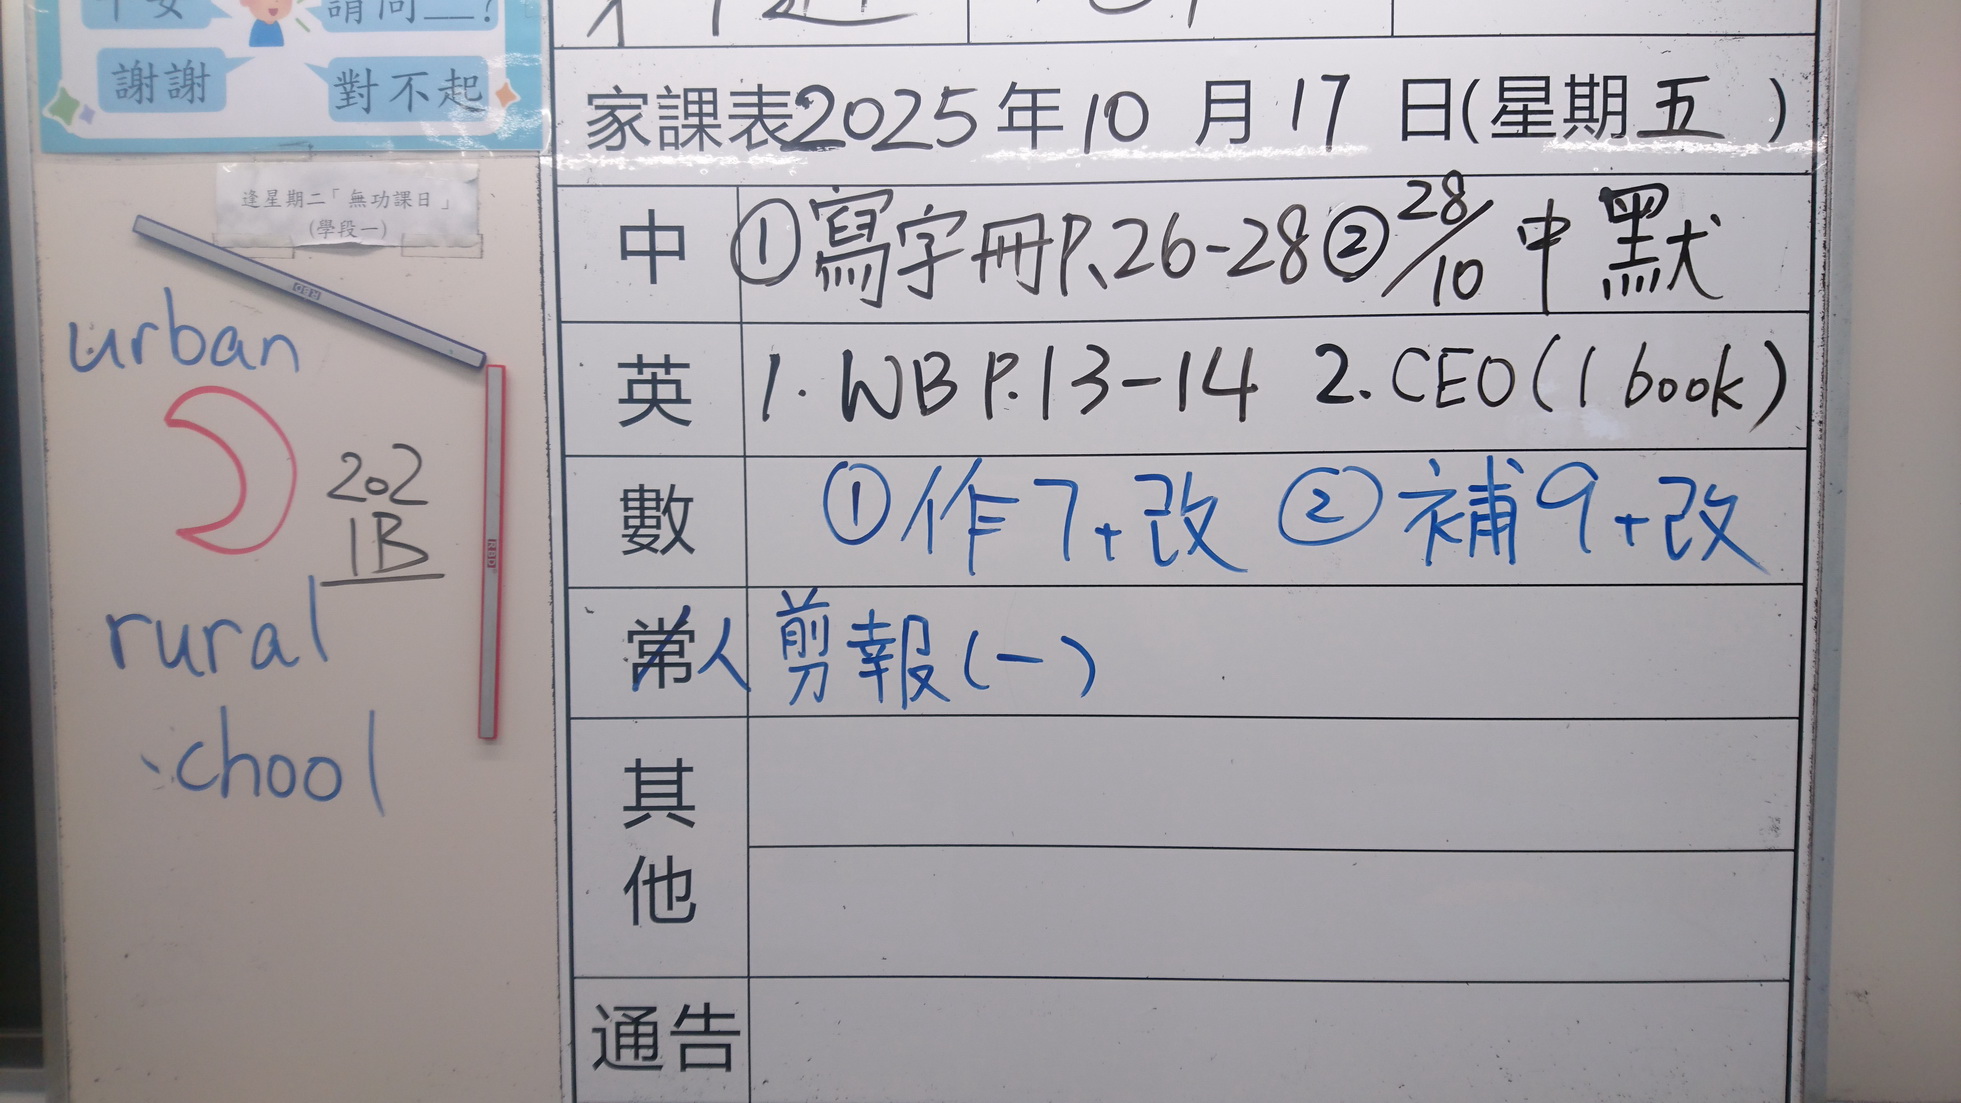 請問__?
謝謝
對不起
逢星期二「無功課日」
(學段一)
urban
202
1B
rural
chool
家課表2025年10月17日(星期五)
中 ①寫字冊P.26-28②28/10中默
英 1. WB P.13-14 2. CEO(1 book)
數 ①作7+改 ②補9+改
常人 剪報(一)
其他
通告